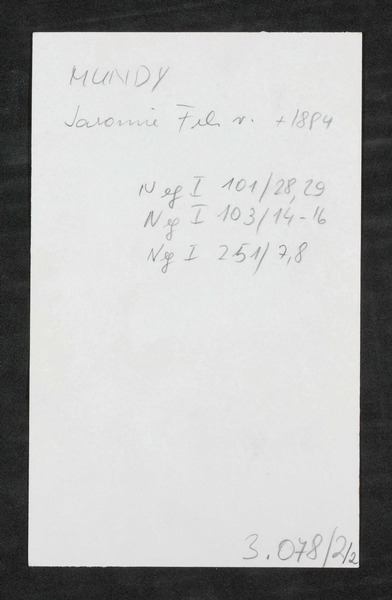 MUNDY
Jaromir Frh v. +1894
Neg I 101/28,29
Neg I 103/14-16
Neg I 251/7,8
3.078/2/2